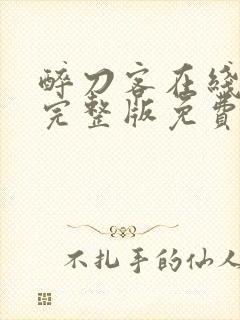 醉刀客在线
完整版免費
不扎手的仙人